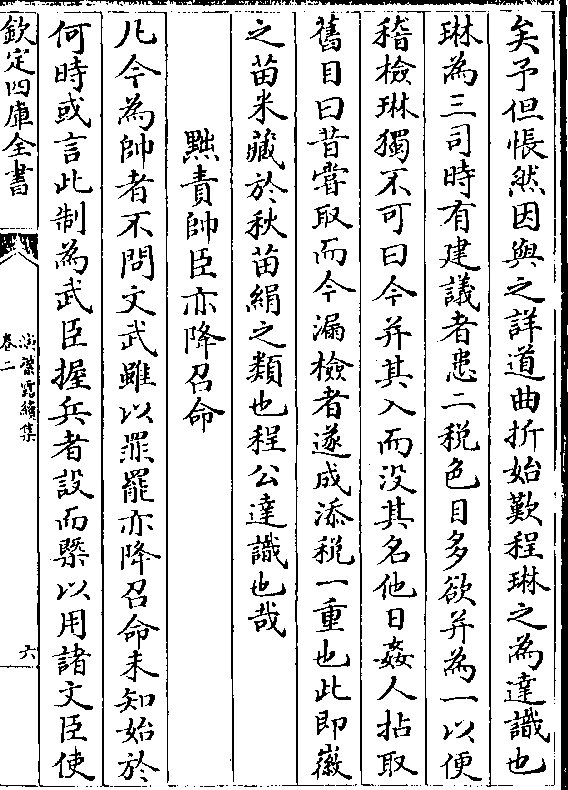 矣予但悵然因與之詳道曲折始歎程琳之為達識也
琳為三司時有建議者患二税色目多欲并為一以便
稽檢琳獨不可曰今并其入而没其名他日姦人拈取
舊目曰昔嘗取而今漏檢者遂成添税一重也此即嶶
之苗米藏於秋苗絹之類也程公達識也哉
黜責帥臣亦降召命
凡今為帥者不問文武雖以罪罷亦降召命未知始於
何時或言此制為武臣握兵者設而槩以用諸文臣使
欽定四庫全書
演繁露續集
卷二
六